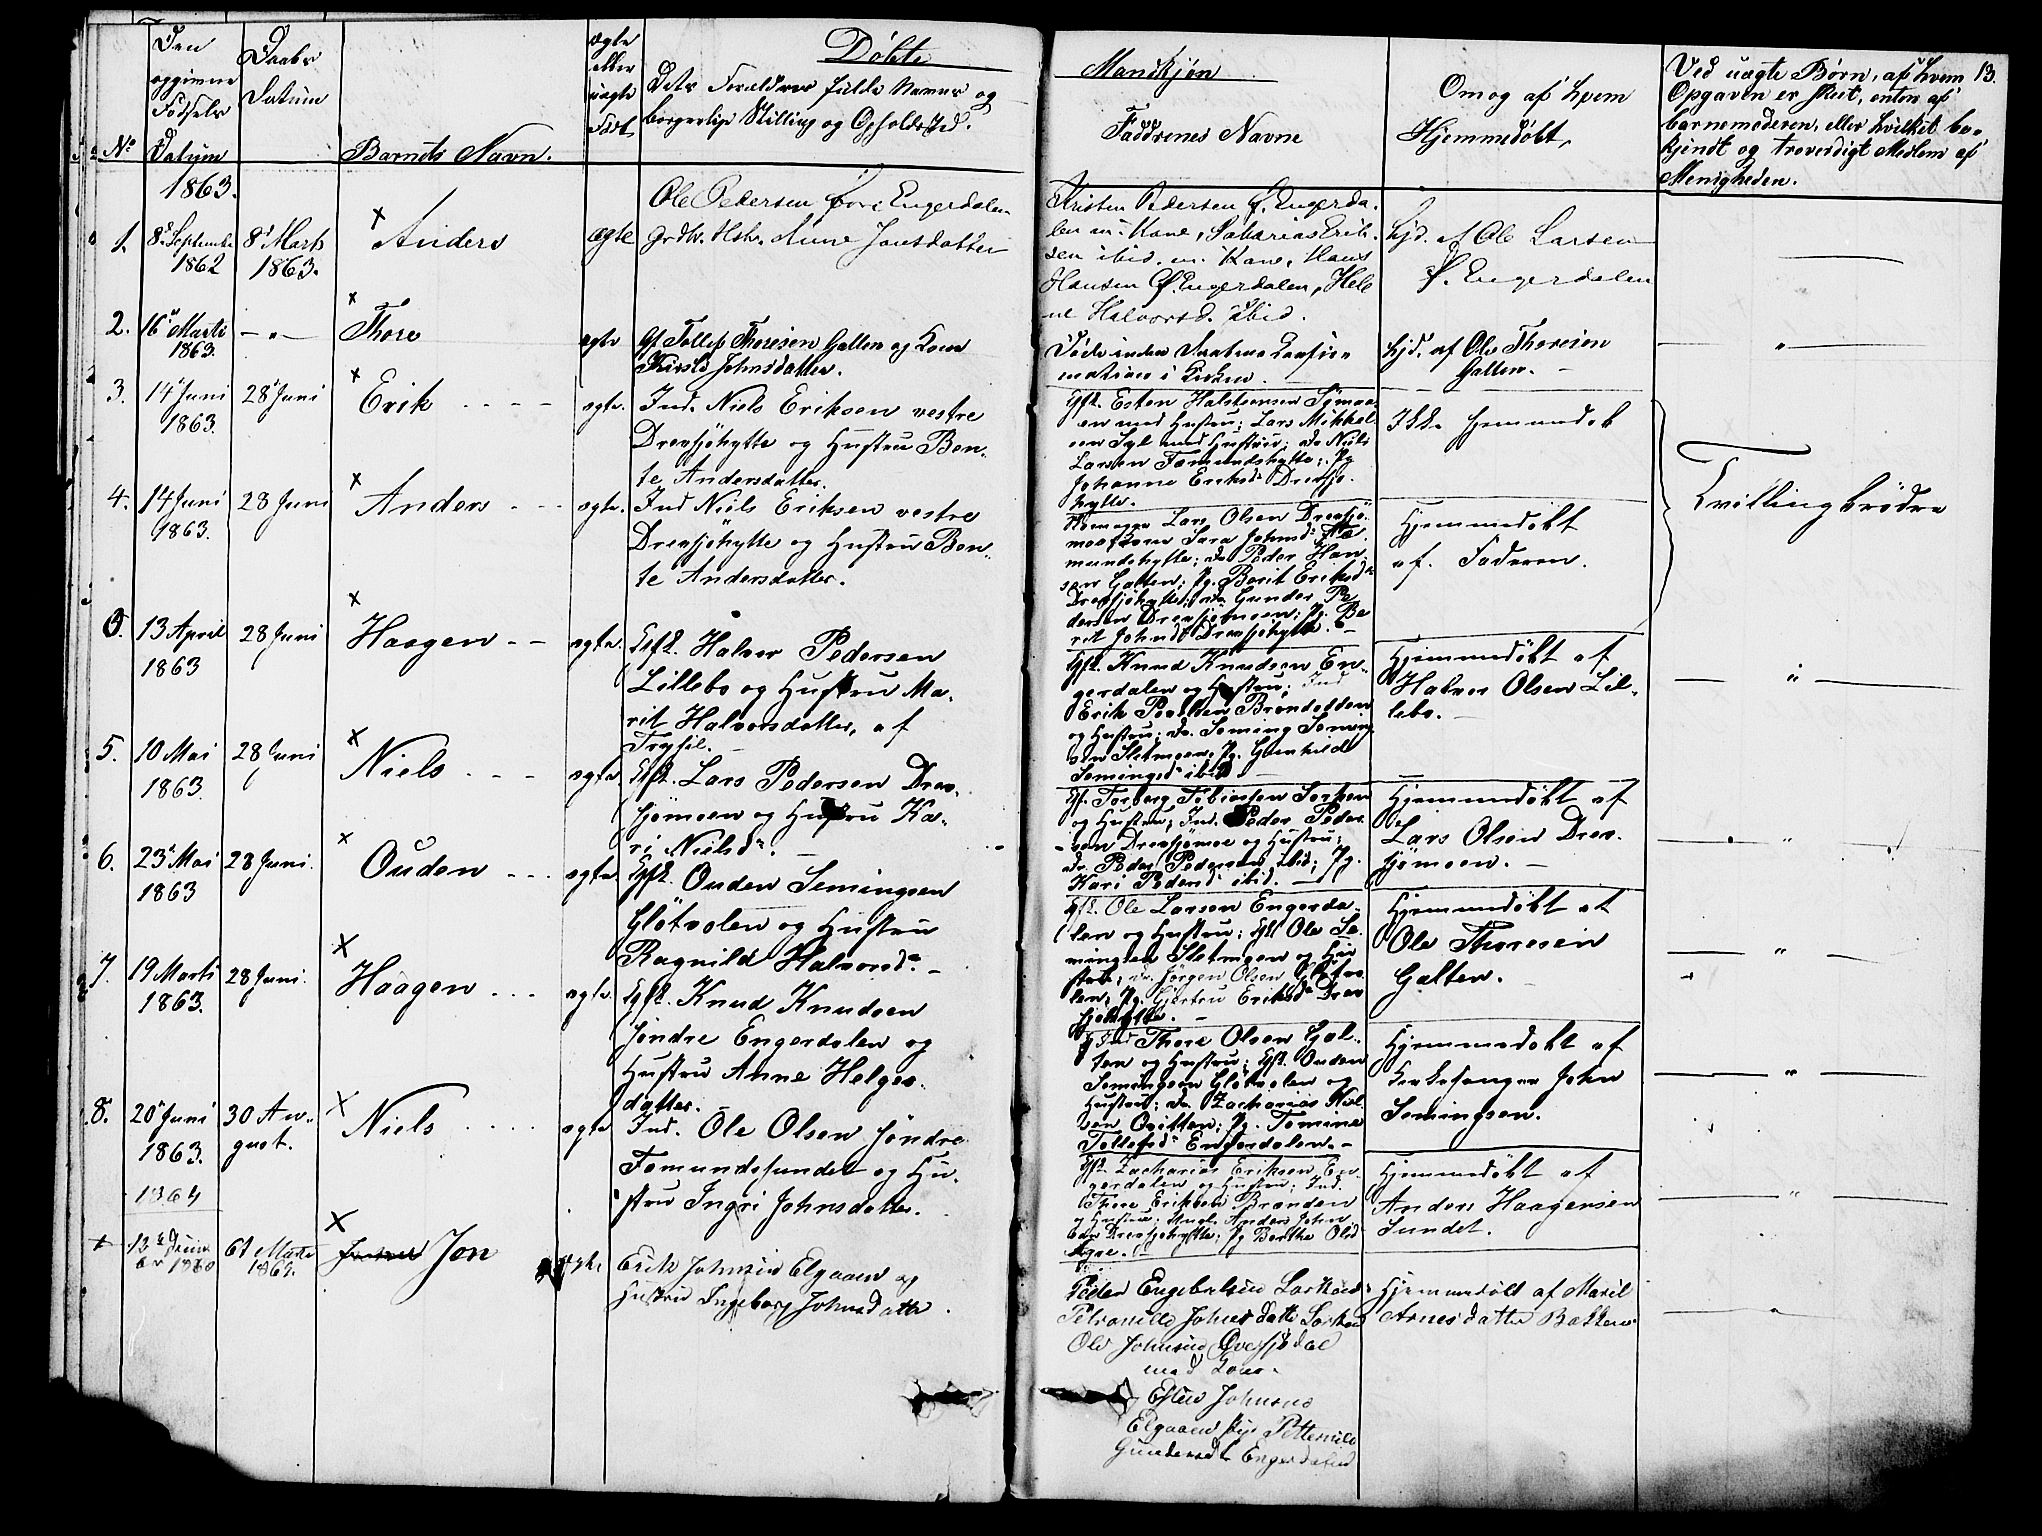 Døbte
Mandkjøn
13.
No
Den
opgivne
Fødsels
Datum
Daabs
Datum
Barnets Navn.
ægte
eller
uægte
Født
Dets Forældres fulde Navne og
borgerlige Stilling og Opholdsted.
Faddrenes Navne
Om og af hvem
Hjemmedøbt,
Ved uægte Børn, af hvem
Opgaven er skeet, enten af
barnemoderen, eller hvilket be-
kjendt og troverdigt Medlem af
Menigheden.
1863.
1.
8de Septembr
1862
8de Marts
1863.
Anders
ægte
Ole Pedersen Engerdalen
Hstr. Anne Jonsdatter
Kristen Pedersen Ø. Engerda-
len m. Kone, Sakarias Erik-
sen ibid. m. Kone, Hans
Hansen Ø. Engerdalen, Hele
ne Halvorsd. ibid.
hjd. af Ole Larsen
Ø. Engerdalen
2.
16de Marts
1863.
— " —
Thore
ægte
Gf Tollef Thoresen Galten og Kone
Johnsdatter.
Døde inden Daabens Confir-
mation i Kirken.
hjd. af Ole Thoresen
Galten. —
3.
14de Juni
1863.
28de Juni
Erik
ægte.
Ind. Niels Eriksen vestre
Drevsjöhytte og Hustru Ben-
te Andersdatter.
Gfk. Esten Halstensen Sømo-
en med Hustru; Lars Mikkel-
sen Syl med Hustru; Niels
Larsen Fæmundshytte; Pg
Johanne Eriksdr Drevsjø-
hytte.
Ikke hjemmedøb
Tvillingbrödre
4.
14 Juni
1863.
28 Juni
Anders
ægte.
Ind Niels Eriksen vestre
Drevsjöhytte og Hustru Ben-
te Andersdatter.
Lars Olsen Drevsjö-
Sara Johnsdr Fæ-
mundshytte; Peder Han-
sen Galten; Pg. Berit Eriksdr
Drevsjöhytte; Gunder Pe
dersen Drevsjømoen; Pg. Be
rit Johnsdr Drevsjøhytte. —
Hjemmedöbt
af Faderen.
13 April
1863
28 Juni
Haagen
ægte.
Gfk. Halvor Pedersen
Lillebo og Hustru Ma-
rit Halvorsdatter, af
Trysil. —
Gfk. Knud Knudsen En-
gerdalen og Hustru; Ind
Erik Brændodden
og Hustru; Seming Seming
sen Sletmoen; Pg. Gunhild
Semingsdr ibid —
Hjemmedöbt af
Halvor Olsen Lil-
lebo. —
5.
10 Mai
1863.
28 Juni
Niels
ægte.
Gfk. Lars Pedersen Drev-
sjømoen og Hustru Ka-
ri Nielsdr. —
Gf. Torberg Tobiassen Sorken
og Hustru; Ind. Peder Peder-
sen Drevsjømoe og Hustru;
Peder Pedersen ibid; Pg.
Kari Pedersdr ibid. —
Hjemmedöbt af
Lars Olsen Drev-
sjømoen. —
6.
23de Mai
1863
28 Juni.
Ouden
ægte.
Gfk. Ouden Semingsen
Glötvolen og Hustru
Ragnild Halvorsdr. —
Gfk. Ole Larsen Engerda-
len og Hustru; Gfk Ole Se-
mingsen Sletmoen og Hu-
stru; Jørgen Olsen Glötvo-
len; Pg. Gjertru Eriksdr Drev
sjöhytte. —
Hjemmedöbt af
Ole Thoresen
Galten.
7.
19 Marts
1863.
28 Juni.
Haagen
ægte.
Gfk. Knud Knudsen
Jöndre Engerdalen og
Hustru Anne Helges-
datter. —
Ind Thore Olsen Gal-
ten og Hustru; Gfk. Ouden
Semingsen Glötvolen og
Hustru; Zacharias Niel-
sen Qvitten; Pg. Tomine
Tollefsdr Engerdalen. —
Hjemmedöbt af
Kirkesanger John
Semingsen.
8.
20de Juni
1863.
30 Au-
gust.
Niels
ægte
Ind. Ole Olsen Jöndre
Fæmundssundet og Hu-
stru Ingri Johnsdatter.
Gfk. Zacharias Eriksen En-
gerdalen og Hustru; Ind.
Thore Eriksen Brænden
og Hustru; Anders John
sen Drevsjöhytte; Pg Berthe Olsd
Agre.
Hjemmedöbt af
Anders Haagensen
Sundet.
1864
1860
Marts
1864.
Jon
Erik Johnsen Elgaaen og
Hustru Ingeborg Johnsdatter.
Peder Engebretsen Sorken
Petronille Johnsdatter Sorken
Ole Johnsen
med Kone.
Esten Johnsen
Elgaaen
Gundersdtr Engerdalen
Hjemmedøbt af Marit
Arnesdatter Bakken